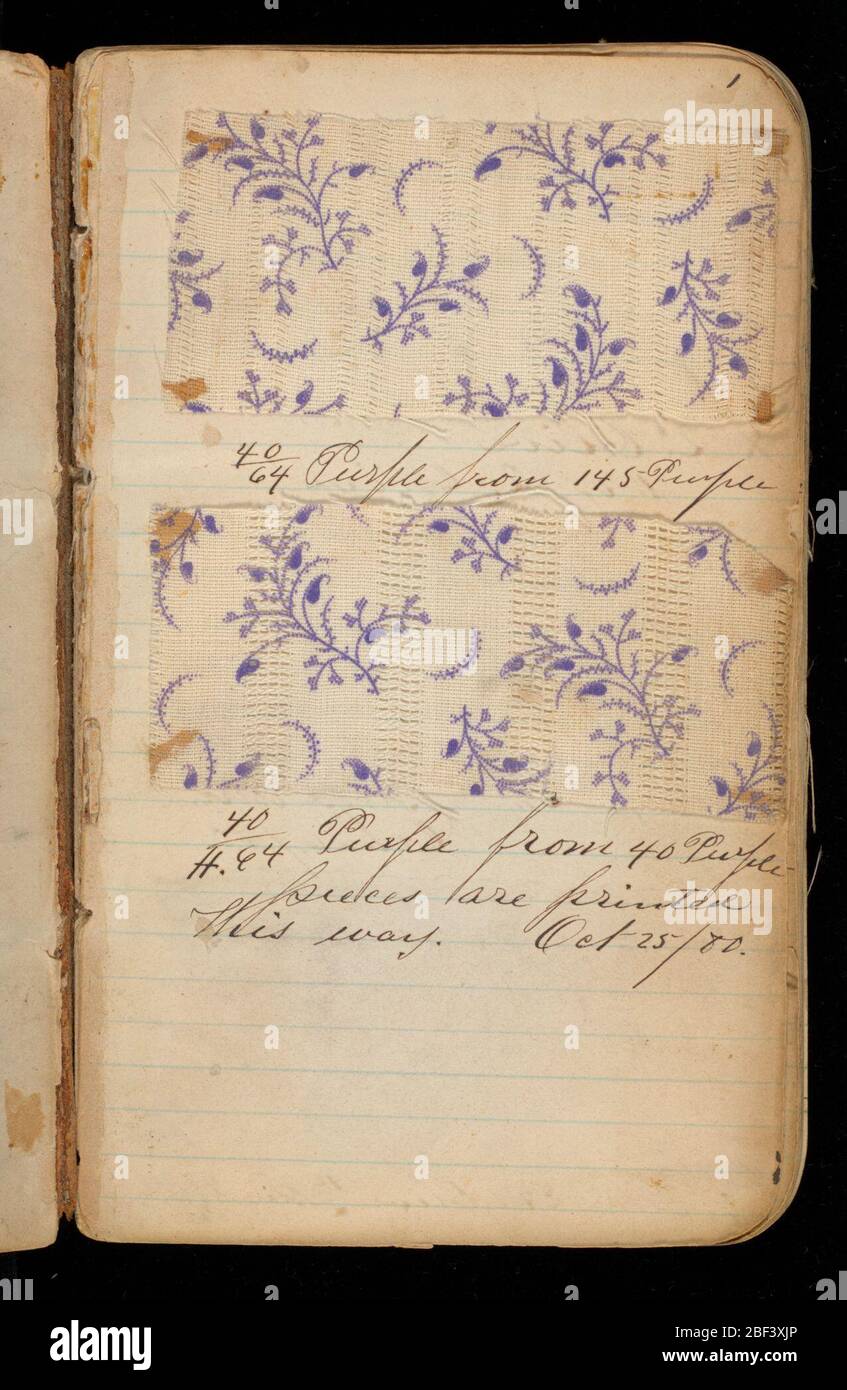 1
40/64 Purple from 145 Purple
40/H.64 Purple from 40 Purple
pieces are printed
This way. Oct 25/80.
alamy
Image ID: 2BF3XJP
www.alamy.com